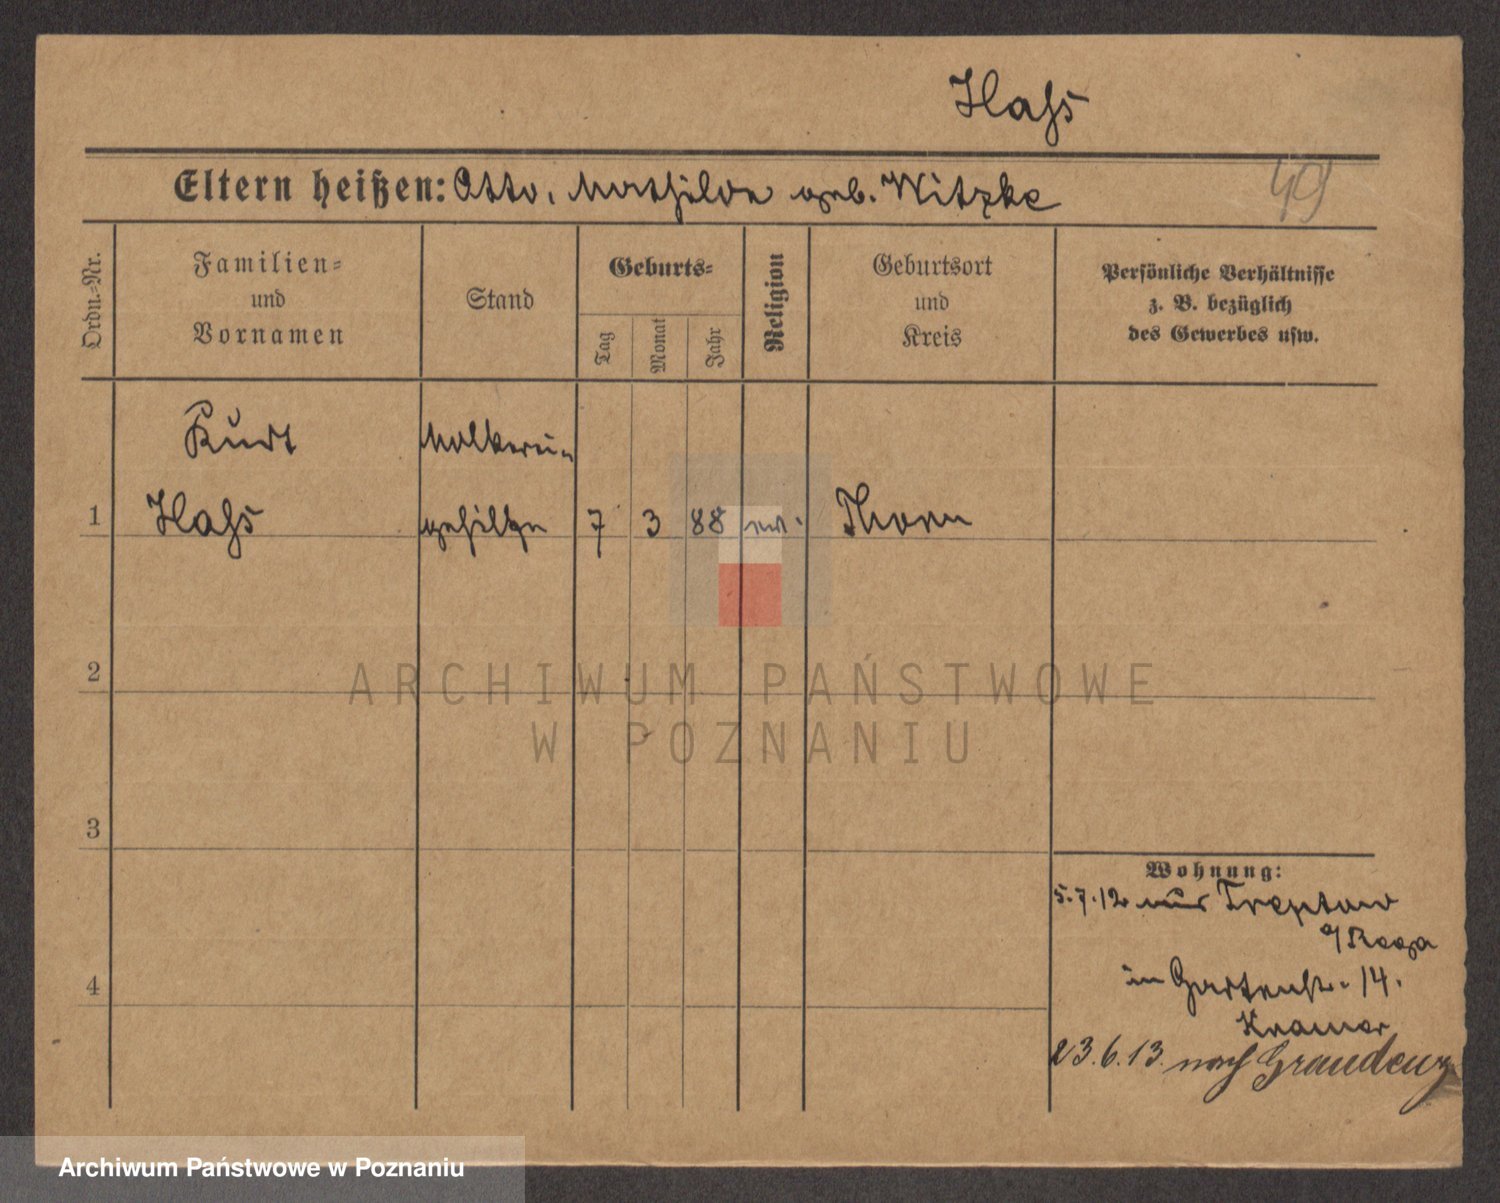 Hass
Eltern heißen: Otto, Mathilde geb. Witzke
49
Ordn.-Nr.
Familien-
und
Vornamen
Stand
Geburts-
Tag
Monat
Jahr
Religion
Geburtsort
und
Kreis
Persönliche Verhältnisse
z. B. bezüglich
des Gewerbes usw.
Kurt
Molkerei-
1 Hass gehilfe 7 3 88 ev. Thorn
2
ARCHIWUM PAŃSTWOWE
W POZNANIU
3
Wohnung:
5.7.12 aus Treptow
a/Rega
4
in Gartenstr. 14.
Kramer
23.6.13. nach Graudenz
Archiwum Państwowe w Poznaniu